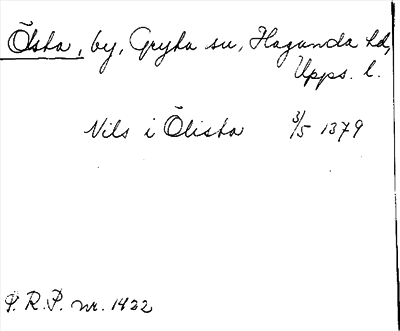 Ölsta, by, Gryta sn, Hagunda hd,
Upps. l.
Nils i Ölista 3/5 1379
P. R. P. nr. 1422